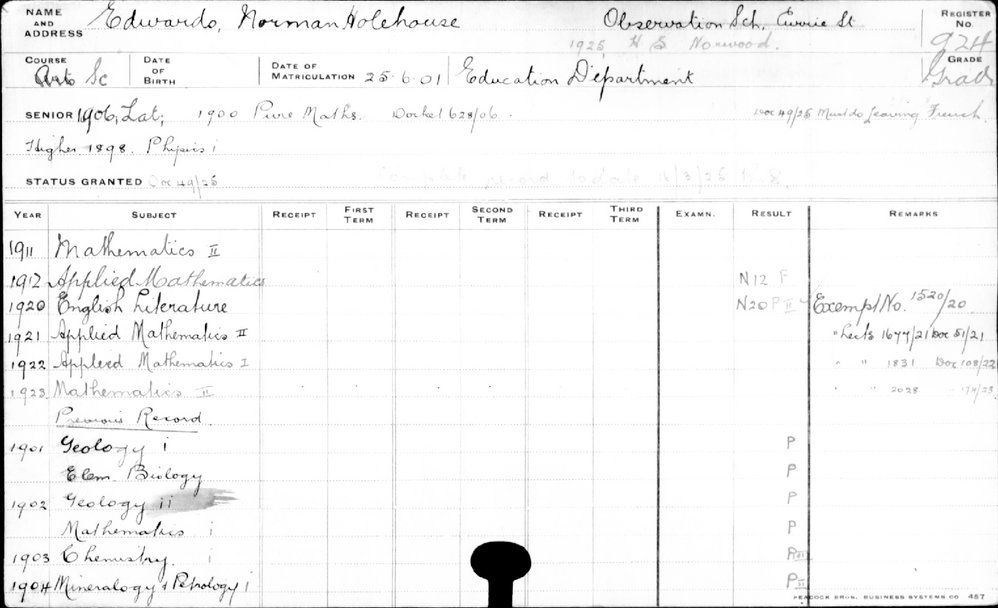 NAME AND ADDRESS Edwards, Norman Holehouse Observation Sch. Currie St REGISTER No. 924
1925, H S Norwood.
COURSE Arts Sc DATE OF BIRTH DATE OF MATRICULATION 25-6-01 Education Department GRADE Grad
SENIOR 1906, Lat, 1900 Pure Maths. Docket 628/06. Doc 49/25 Must do Leaving French.
Higher 1898. Physics i
STATUS GRANTED Doc 49/25 Complete record to date
YEAR SUBJECT RECEIPT FIRST TERM RECEIPT SECOND TERM RECEIPT THIRD TERM EXAMN. RESULT REMARKS
1911 Mathematics II
1912 Applied Mathematics N12 F
1920 English Literature N20 P II Exempt No. 1520/20
1921 Applied Mathematics II " Lects 1677/21 Doc 51/21
1922 Applied Mathematics I " " 1831 Doc 108/22
1923 Mathematics II " " 2028 174/23
Previous Record.
1901 Geology i P
Elem. Biology P
1902 Geology ii P
Mathematics i P
1903 Chemistry. i P III
1904 Mineralogy & Petrology i P II
PEACOCK BROS. BUSINESS SYSTEMS CO 457